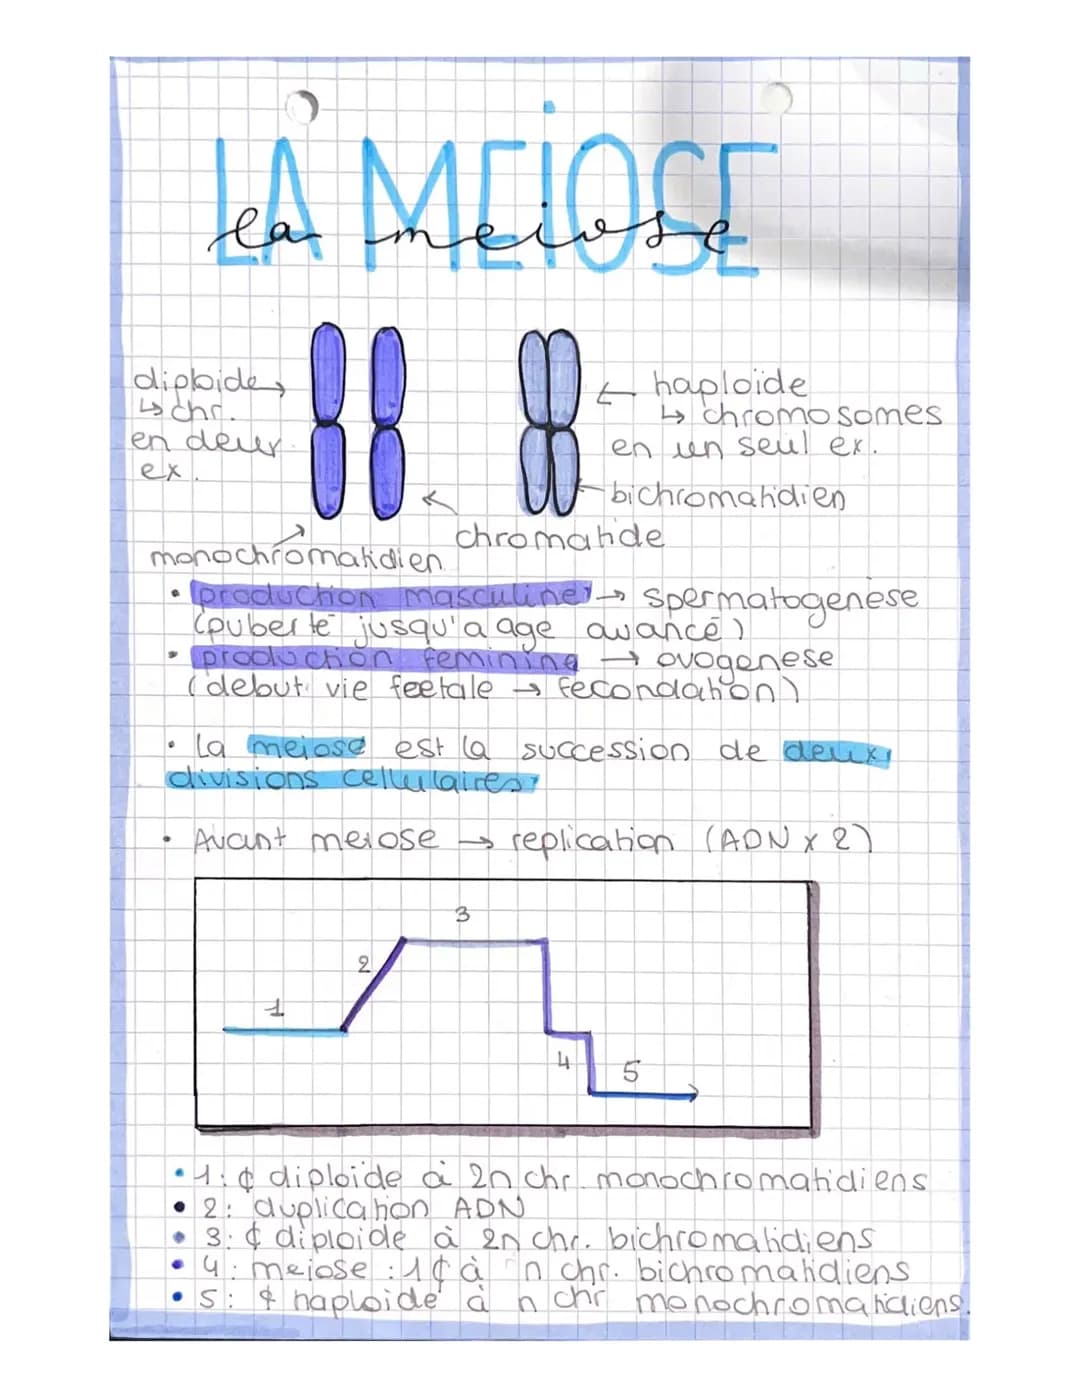 LA MEIOSE
la meiose
diploide
↳ chr.
en deux
ex.
monochromatidien
chromatide
← haploïde
↳ chromosomes
en un seul ex.
bichromatidien
• production masculine → spermatogenèse
(puberté jusqu'a age avancé)
• production feminine → ovogenese
(debut vie feetale → fecondation)
• La meiose est la succession de deux
divisions cellulaires
• Avant meiose → replication (ADN x 2)
1
2
3
4
5
• 1: ¢ diploïde à 2n chr. monochromatidiens
• 2: duplication ADN
• 3: ¢ diploide à 2n chr. bichromatidiens
• 4: meiose : 1¢ à n chr. bichromatidiens
• 5: ¢ haploide à n chr monochromatidiens.